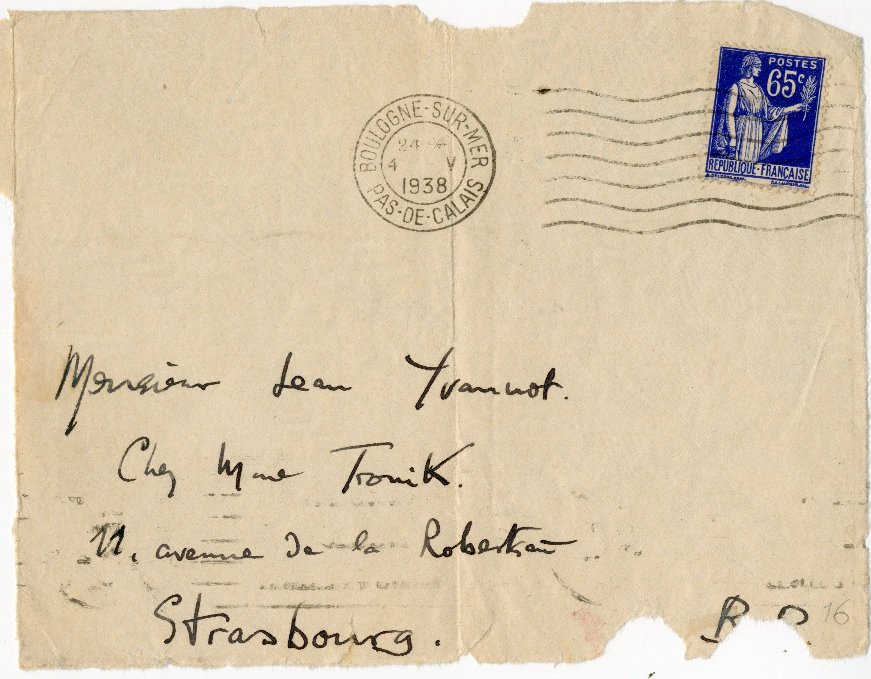 BOULOGNE-SUR-MER
24
4 V
1938
PAS-DE-CALAIS
POSTES
65c
REPUBLIQUE-FRANÇAISE
Monsieur Jean Yvannot.
Chez Mme Tronik.
11, avenue de la Robertsau
Strasbourg.
16